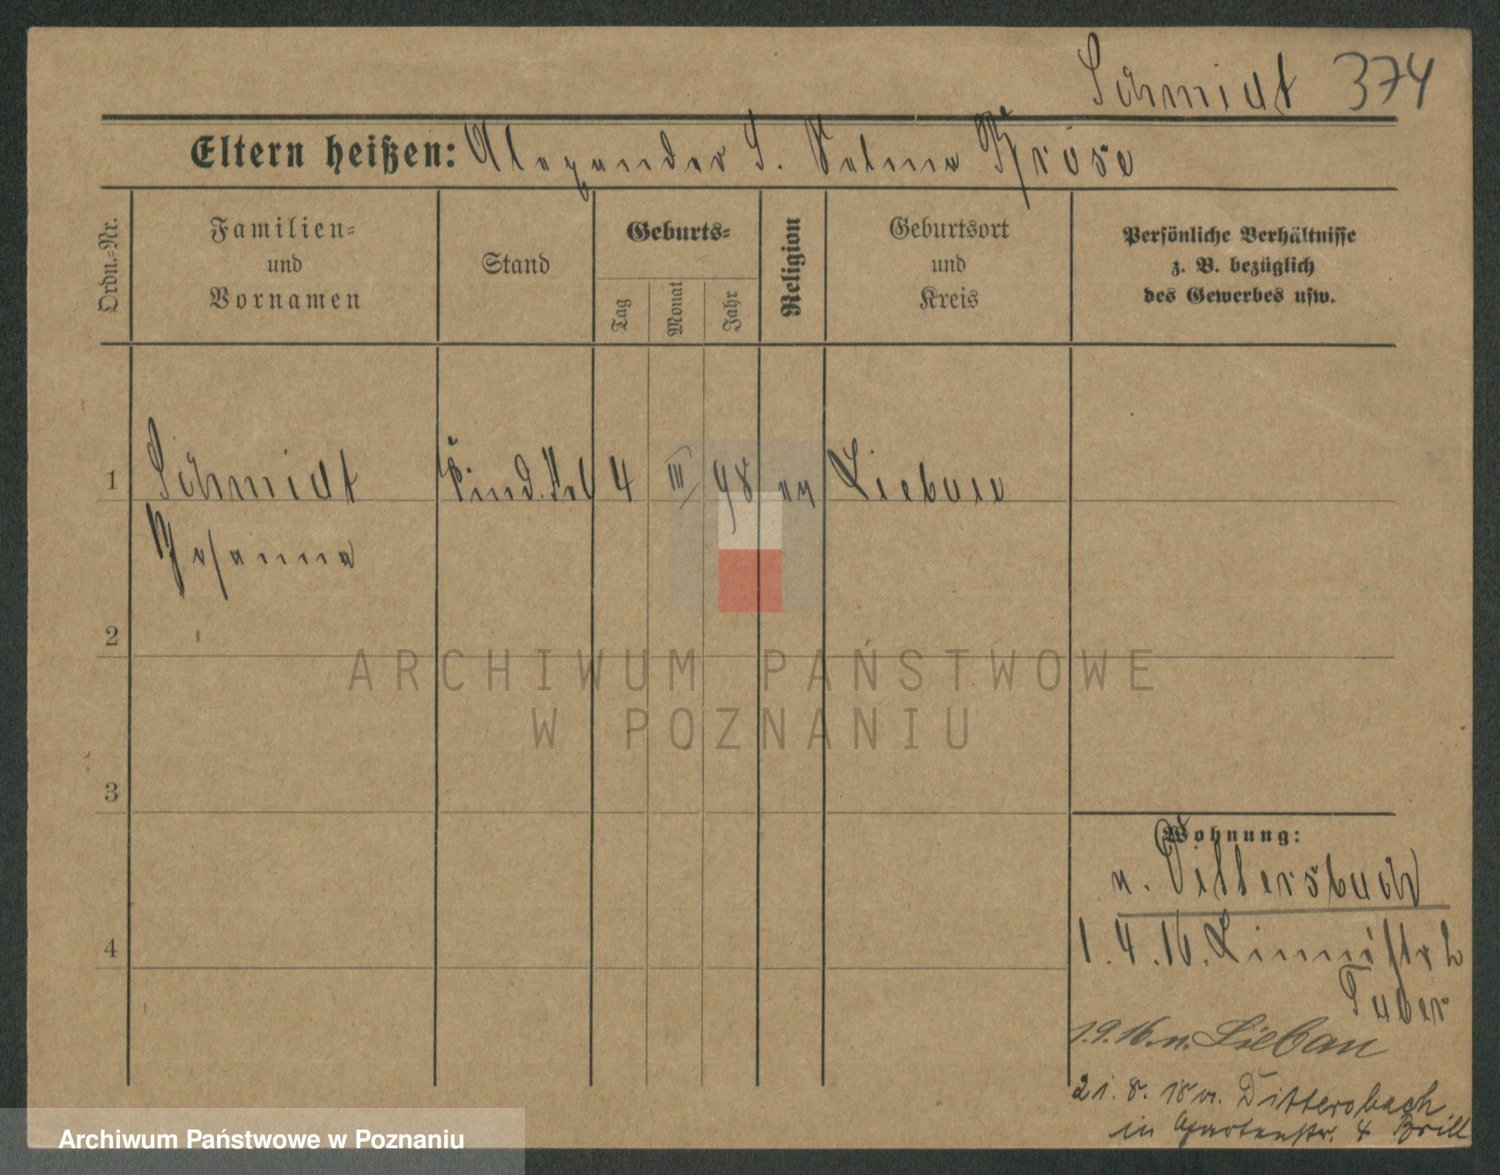 Schmidt 374
Eltern heißen: Alexander S. Selma Kröse
Ordn.-Nr.
Familien- und Vornamen
Stand
Geburts-
Tag
Monat
Jahr
Religion
Geburtsort und Kreis
Persönliche Verhältnisse
z. B. bezüglich
des Gewerbes usw.
1 Schmidt 4 III 98 Liebau
2
3
4
Wohnung:
n. Dittersbach
1.4.16.
1.9.16. n. Liebau
21.8.18 v. Dittersbach
in Gartenstr. 4 Brill
ARCHIWUM PAŃSTWOWE
W POZNANIU
Archiwum Państwowe w Poznaniu